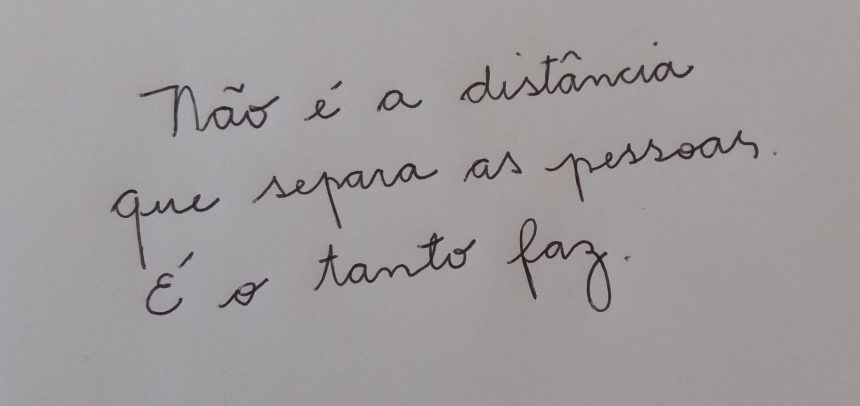 Não é a distância
que separa as pessoas.
É o tanto faz.